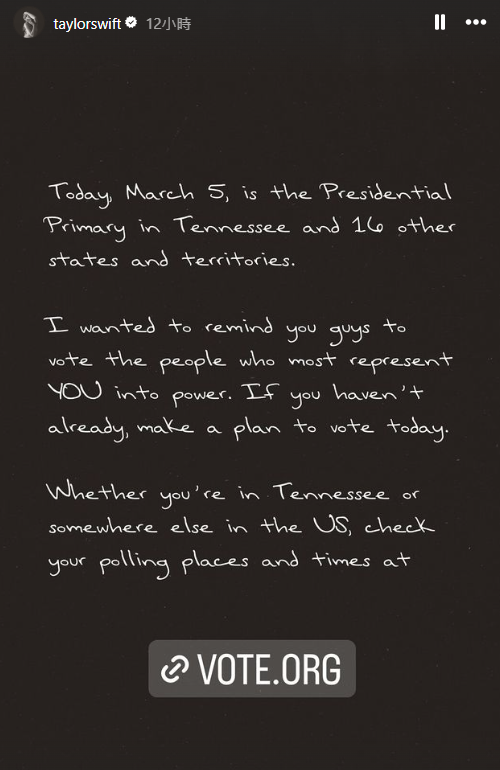 taylorswift 12小時
Today, March 5, is the Presidential
Primary in Tennessee and 16 other
states and territories.
I wanted to remind you guys to
vote the people who most represent
YOU into power. If you haven't
already, make a plan to vote today.
Whether you're in Tennessee or
somewhere else in the US, check
your polling places and times at
VOTE.ORG